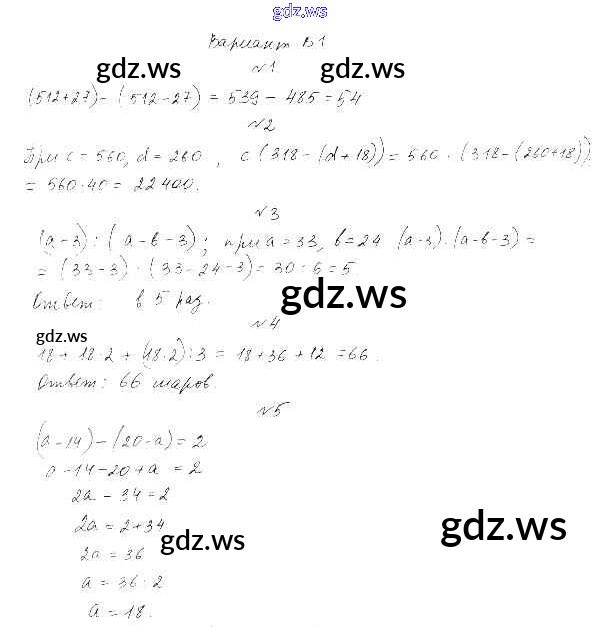 gdz.ws
Вариант В1
gdz.ws gdz.ws
№1
(512+27)-(512-27) = 539-485=54
№2
При c=560, d=260, c(318-(d+18))=560·(318-(260+18))
=560·40=22400.
№3
(a-3):(a-b-3); при a=33, b=24 (a-3):(a-b-3)=
=(33-3):(33-24-3)=30:6=5.
Ответ: в 5 раз.
gdz.ws
№4
gdz.ws
18+18·2+(18·2):3=18+36+12=66.
Ответ: 66 шаров.
№5
(a-14)-(20-a)=2
a-14-20+a=2
2a-34=2
2a=2+34
gdz.ws
gdz.ws
2a=36
a=36:2
a=18.